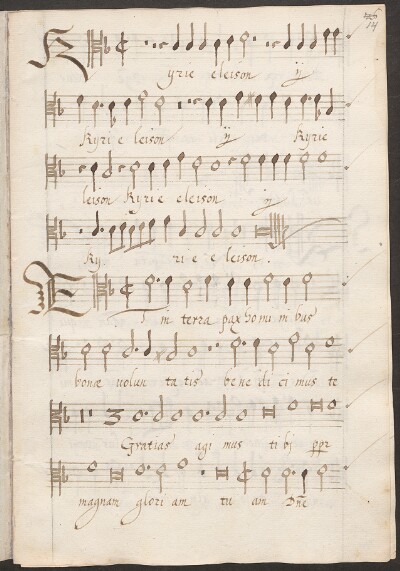 14
Kyrie eleison ij
Kyri e leison ij Kyrie
leison Kyrie eleison ij
Ky. ri e e leison.
Et in terra pax homini bus
bonæ volun ta tis bene di ci mus te
Gratias agi mus tibj ppr
magnam glori am tu am Dñe